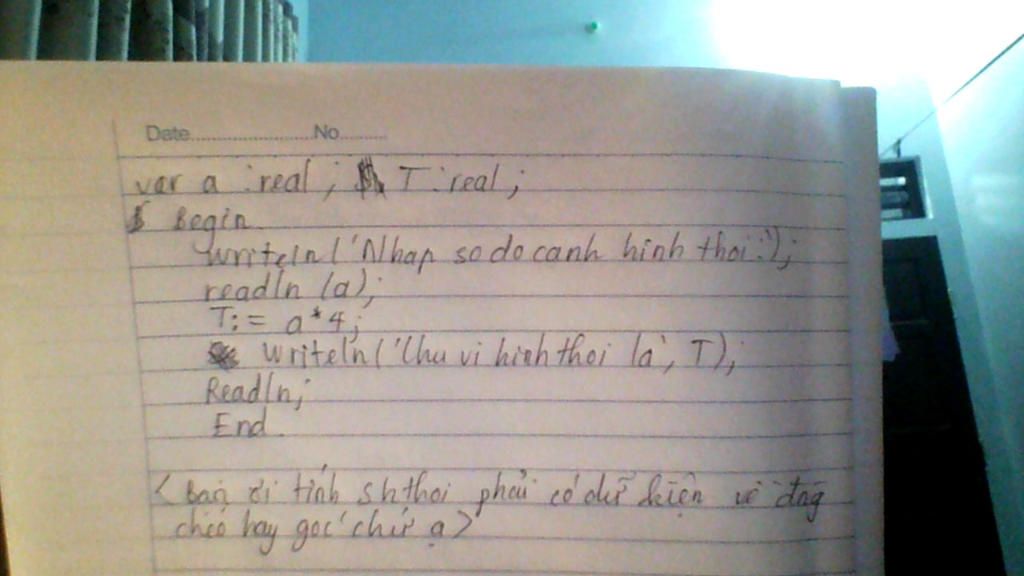 Date No
var a : real ; T : real ;
Begin
writeln ('Nhap so do canh hinh thoi:');
readln (a);
T:= a*4;
writeln ('Chu vi hinh thoi la', T);
Readln;
End.
<Bạn ơi tính shthoi phải có dữ kiện về đng
chéo hay góc chứ ạ>